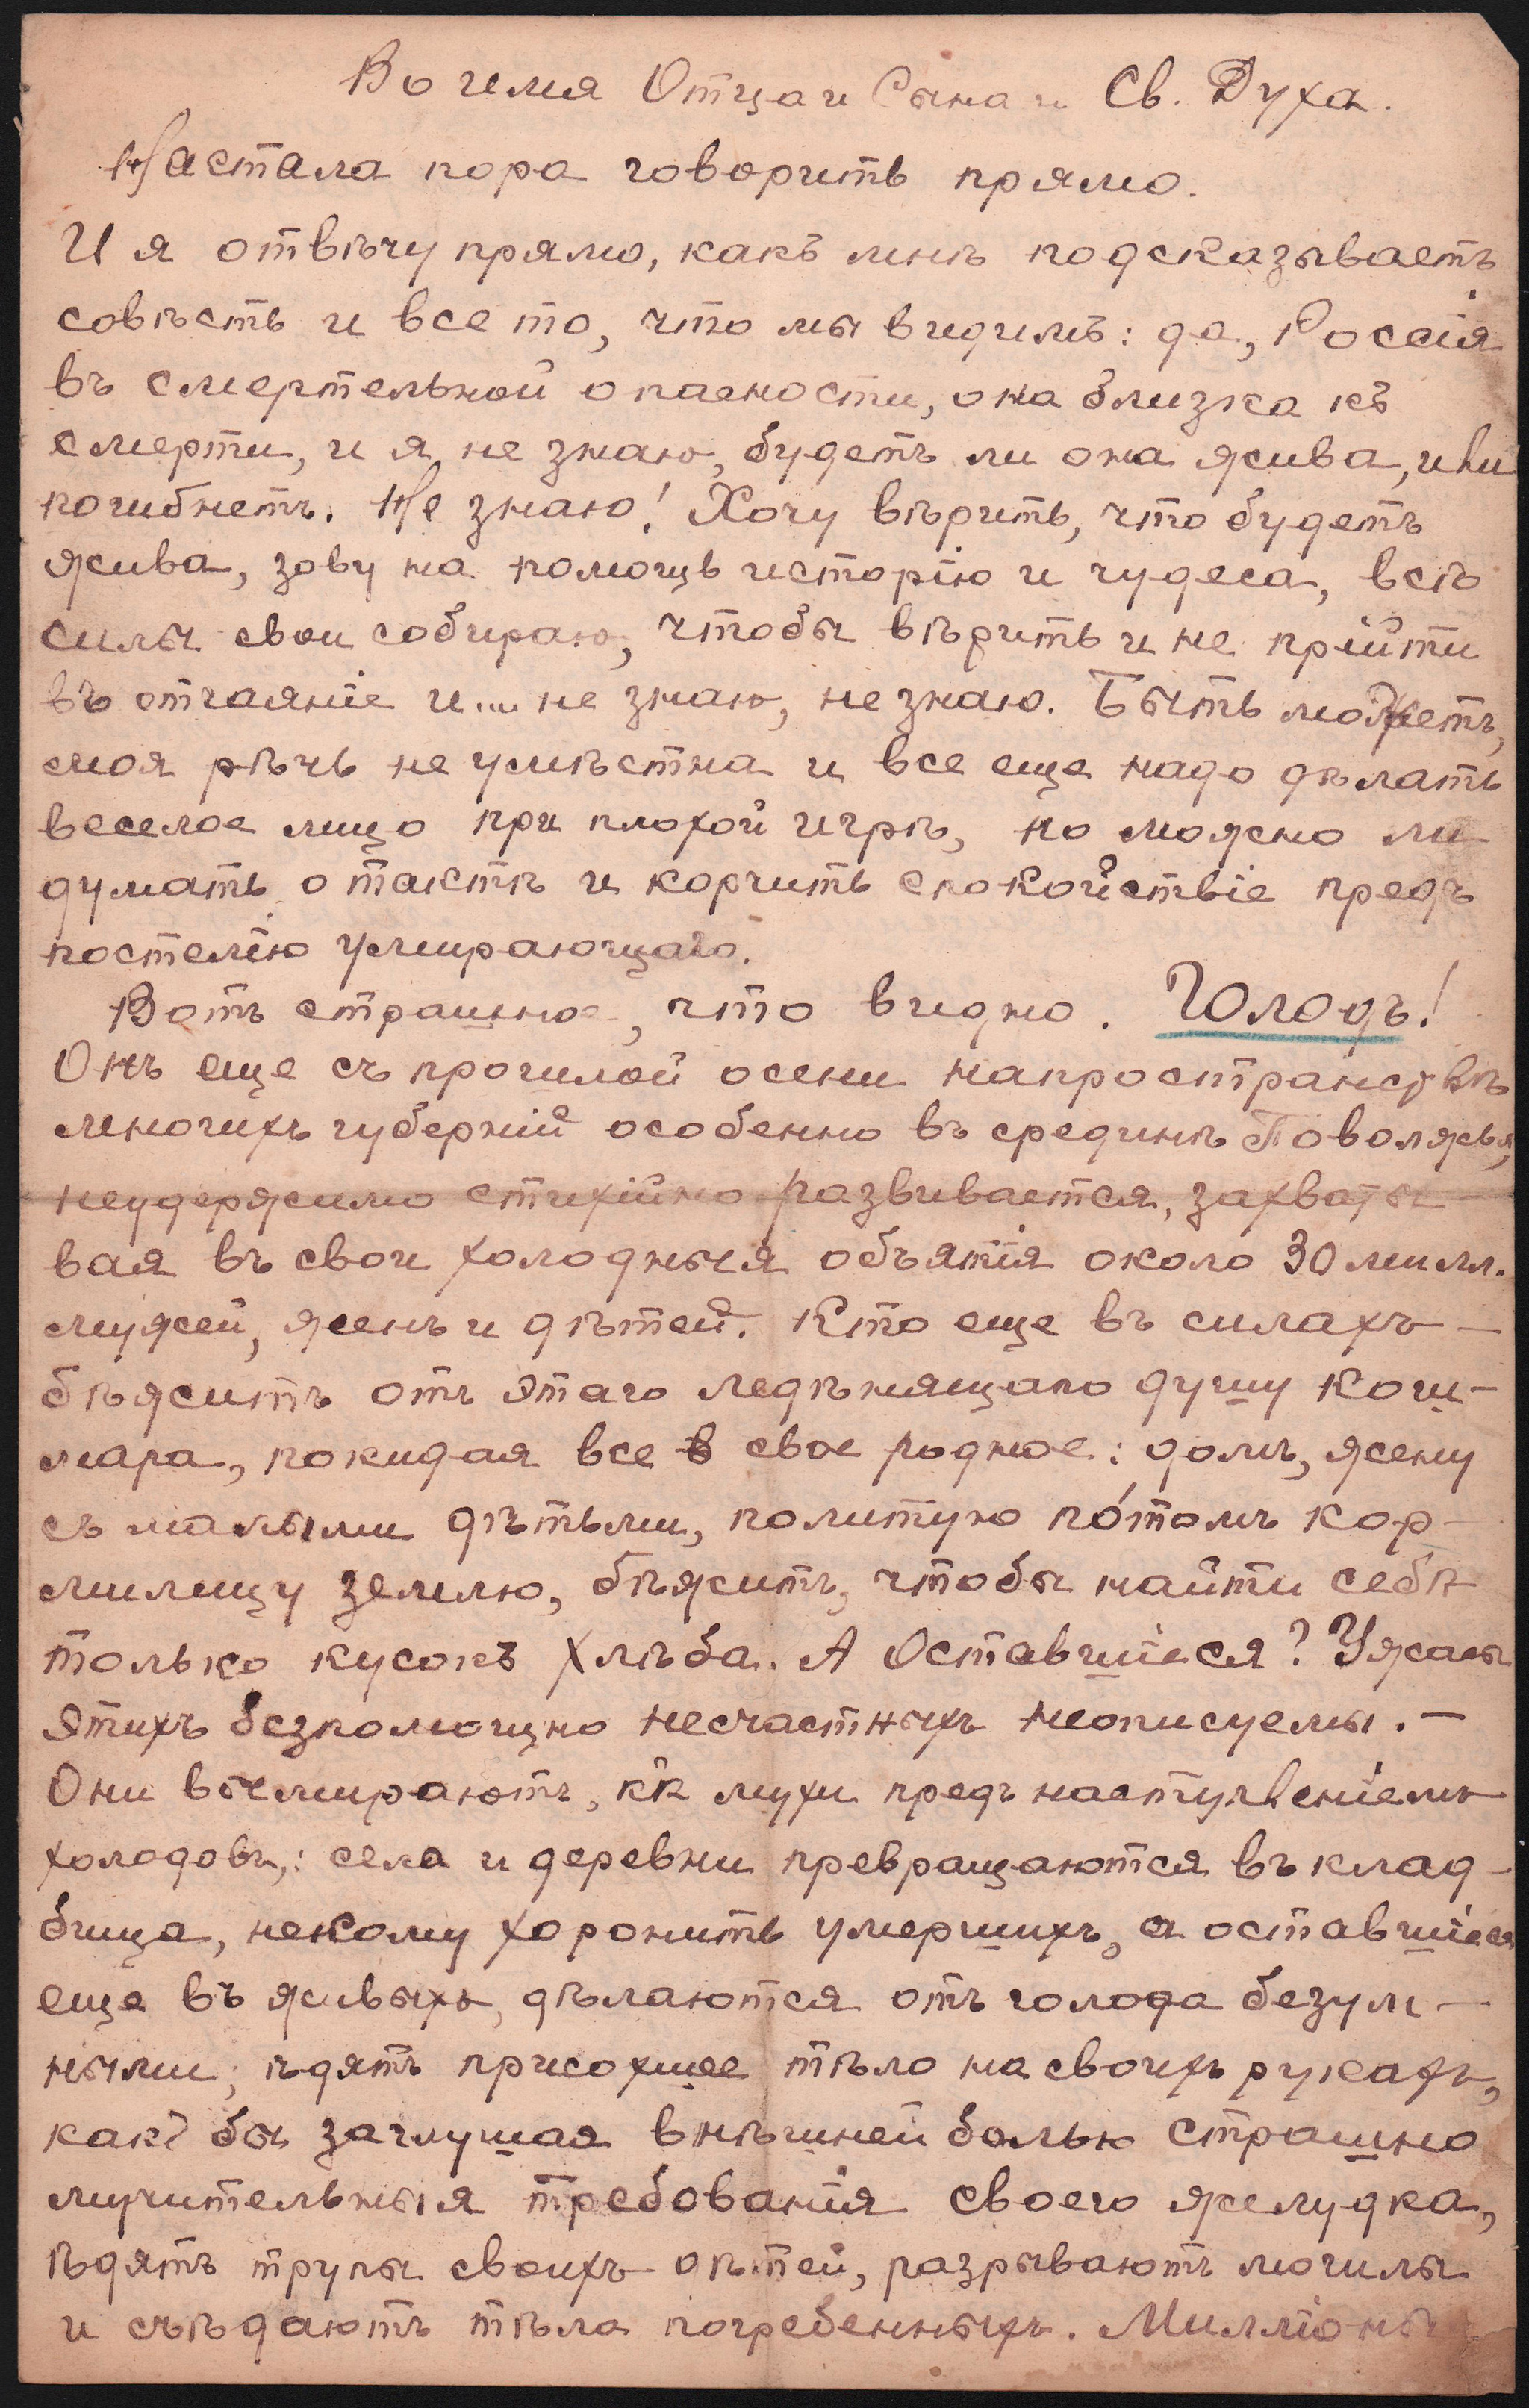 Во имя Отца и Сына и Св. Духа.
Настала пора говорить прямо.
И я отвѣчу прямо, какъ мнѣ подсказываетъ
совѣсть и все то, что мы видимъ: да, Россія
въ смертельной опасности, она близка къ
смерти, и я не знаю, будетъ ли она жива, или
погибнетъ. Не знаю! Хочу вѣрить, что будетъ
жива, зову на помощь исторію и чудеса, всѣ
силы свои собираю, чтобы вѣрить и не прійти
въ отчаяніе и... не знаю, не знаю. Быть можетъ,
моя рѣчь не умѣстна и все еще надо дѣлать
веселое лицо при плохой игрѣ, но можно ли
думать о тактѣ и корчить спокойствіе предъ
постелію умирающаго.
Вотъ страшное, что видно. Голодъ!
Онъ еще съ прошлой осени на пространствѣ
многихъ губерній особенно въ срединѣ Поволжья,
неудержимо стихійно развивается, захваты-
вая въ свои холодныя объятія около 30 милл.
мужей, женъ и дѣтей. Кто еще въ силахъ —
бѣжитъ отъ этаго леденящаго душу кош-
мара, покидая все в свое родное: домъ, жену
съ малыми дѣтьми, политую по́томъ кор-
милицу землю, бѣжитъ, чтобы найти себѣ
только кусокъ хлѣба. А Оставшіеся? Ужасы
этихъ безпомощно несчастныхъ неописуемы. —
Они вымираютъ, кк мухи предъ наступленіемъ
холодовъ,: села и деревни превращаются въ клад-
бища, некому хоронить умершихъ, а оставшіеся
еще въ живыхъ, дѣлаются отъ голода безум-
ными; ѣдятъ присохшее тѣло на своихъ рукахъ,
какъ бы заглушая внѣшней болью страшно
мучительныя требованія своего желудка,
ѣдятъ трупы своихъ дѣтей, разрываютъ могилы
и съѣдаютъ тѣла погребенныхъ. Милліоны